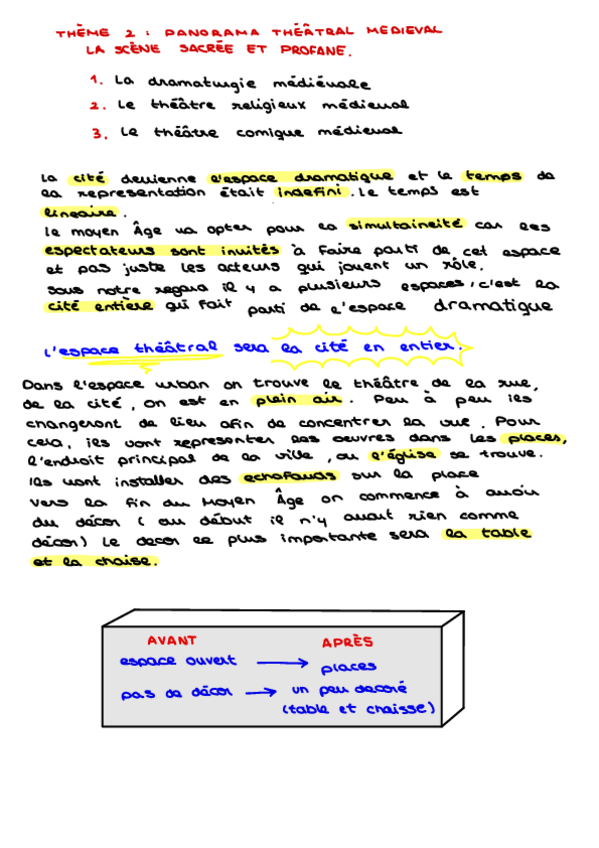 THÈME 2 : PANORAMA THÉÂTRAL MEDIEVAL
LA SCÈNE SACRÉE ET PROFANE.
1. La dramaturgie médiévale
2. Le théâtre religieux médieval
3. Le théâtre comique médieval
La cité devienne l'espace dramatique et le temps de
la representation était indefini. Le temps est
lineaire.
Le moyen Âge va opter pour la simultaineité car les
espectateurs sont invités à faire parti de cet espace
et pas juste les acteurs qui jouent un rôle.
Sous notre regard il y a plusieurs espaces, c'est la
cité entière qui fait parti de l'espace dramatique
L'espace théâtral sera la cité en entier.
Dans l'espace urban on trouve le théâtre de la rue,
de la cité, on est en plein air. Peu à peu ils
changeront de lieu afin de concentrer la vue. Pour
cela, ils vont representer les oeuvres dans les places,
l'endroit principal de la ville, ou l'église se trouve.
Ils vont installer des echafauds sur la place
Vers la fin du Moyen Âge on commence à avoir
du décor ( au début il n'y avait rien comme
décor) Le decor le plus importante sera la table
et la chaise.
AVANT APRÈS
espace ouvert → places
pas de décor → un peu decoré
(table et chaisse)